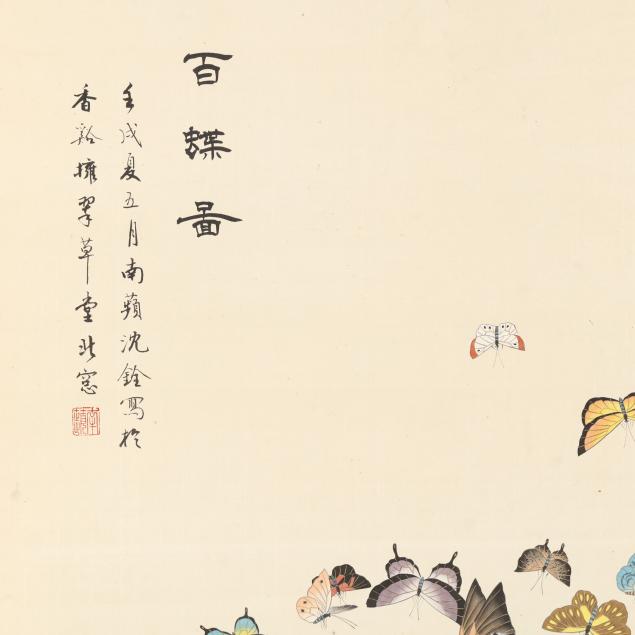 百蝶圖
壬戌夏五月南蘋沈銓寫於
香谿擁翠草堂北窓
南蘋